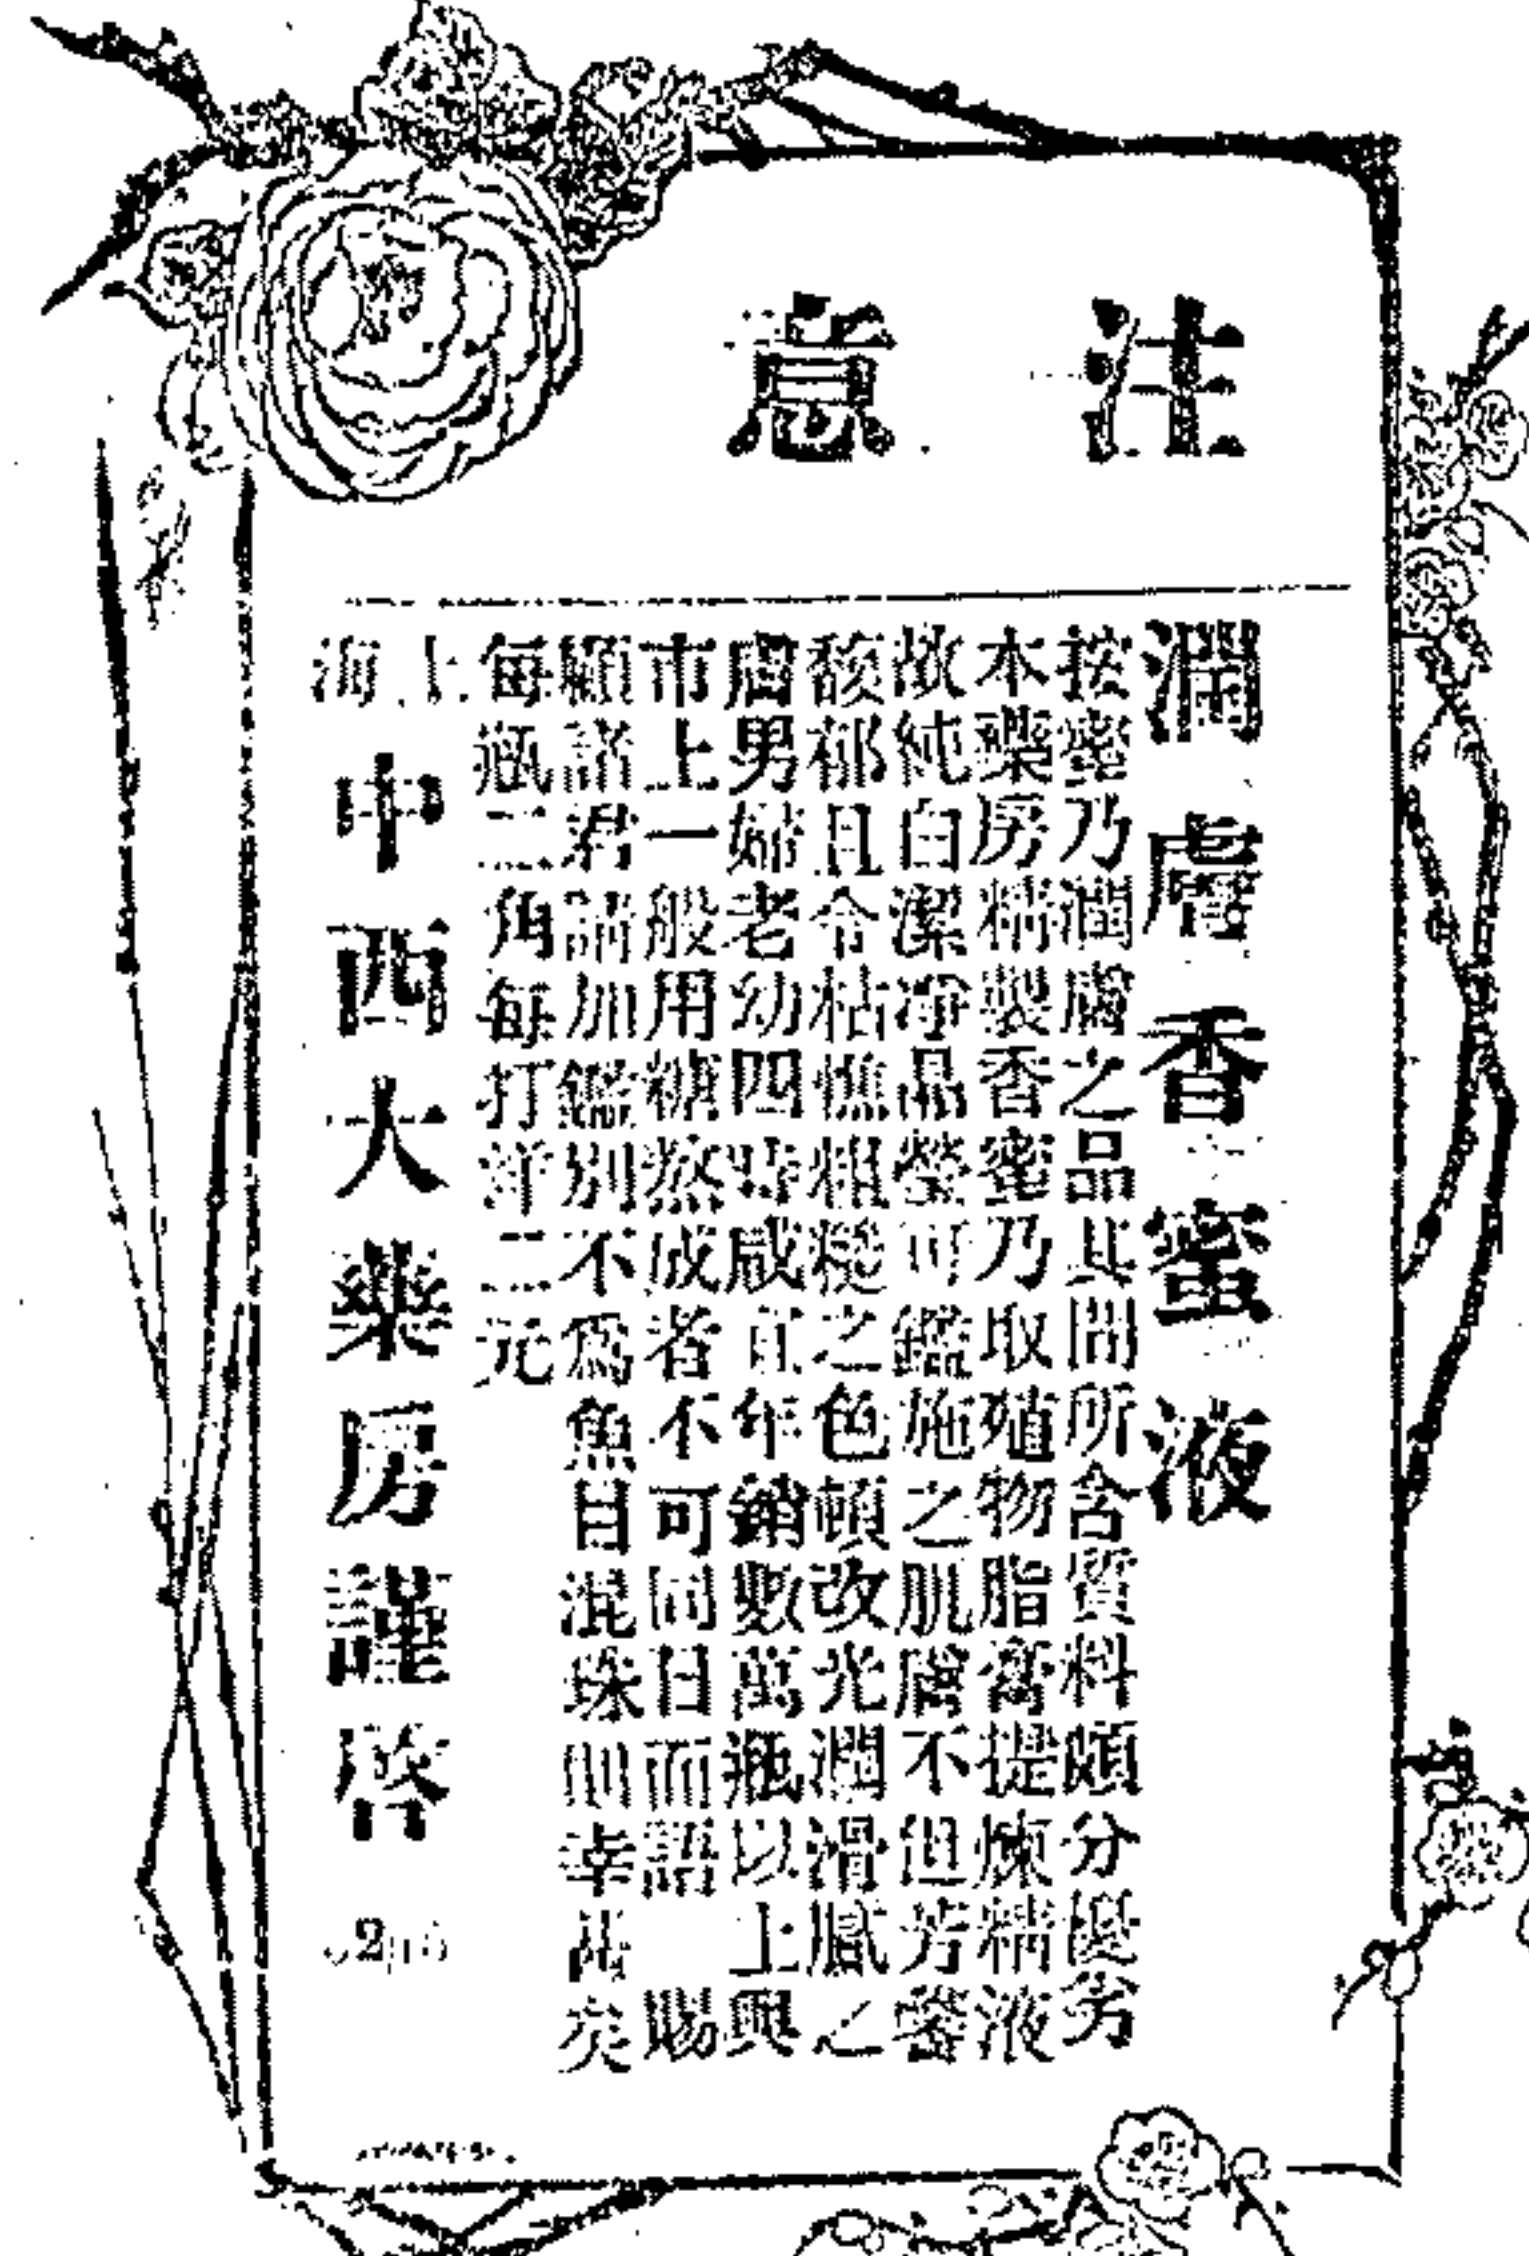 注意
潤膚香蜜液
按蜜乃潤膚之品其間所含質料頗分優劣
本藥房精製香蜜乃取殖物脂膏提煉精液
故純白潔净晶瑩可鑑施之肌膚不但芳馨
馥郁且令枯憔粗糙之色頓改光潤滑膩之
膚男婦老幼四時咸宜年銷數萬瓶以上與
市上一般用糖熬成者不可同日而語 賜
顧諸君請加鑑別不爲魚目混珠則幸甚矣
每瓶二角每打洋二元
上海中西大藥房謹啓